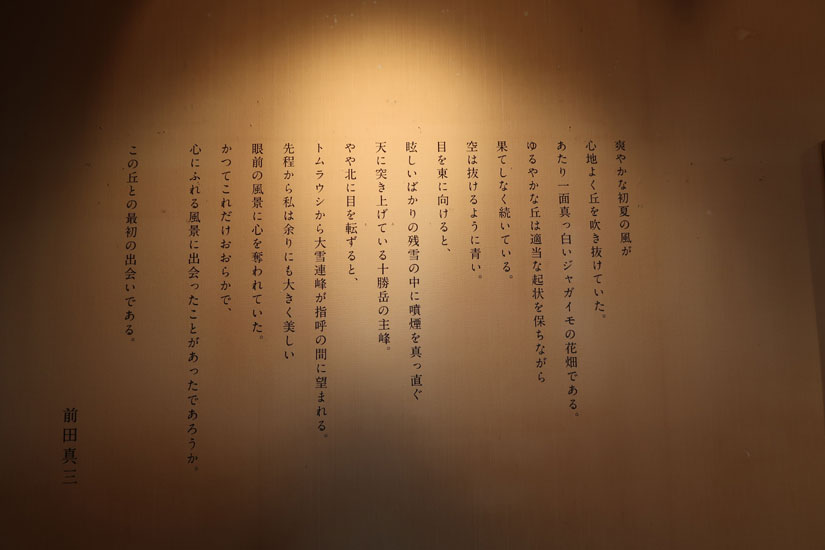 爽やかな初夏の風が
心地よく丘を吹き抜けていた。
あたり一面真っ白いジャガイモの花畑である。
ゆるやかな丘は適当な起伏を保ちながら
果てしなく続いている。
空は抜けるように青い。
目を東に向けると、
眩しいばかりの残雪の中に噴煙を真っ直ぐ
天に突き上げている十勝岳の主峰。
やや北に目を転ずると、
トムラウシから大雪連峰が指呼の間に望まれる。
先程から私は余りにも大きく美しい
眼前の風景に心を奪われていた。
かつてこれだけおおらかで、
心にふれる風景に出会ったことがあったであろうか。
この丘との最初の出会いである。
前田真三